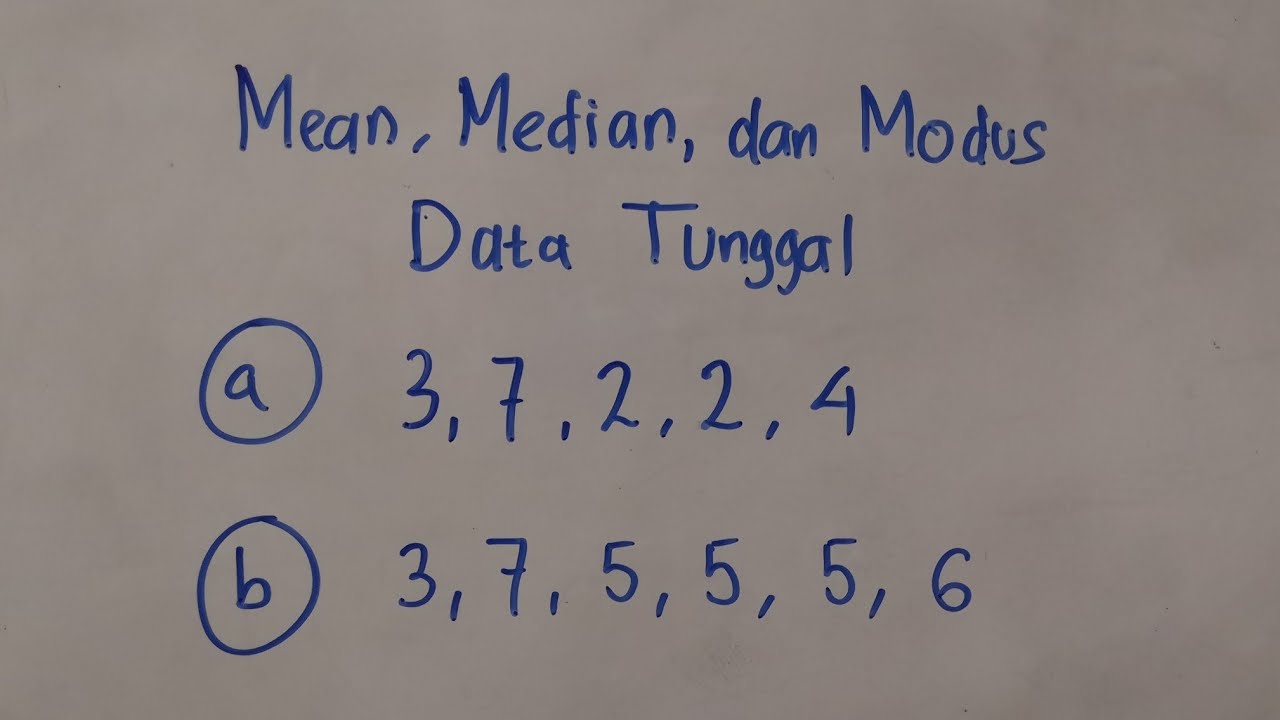 Mean, Median, dan Modus
Data Tunggal
a 3, 7, 2, 2, 4
b 3, 7, 5, 5, 5, 6